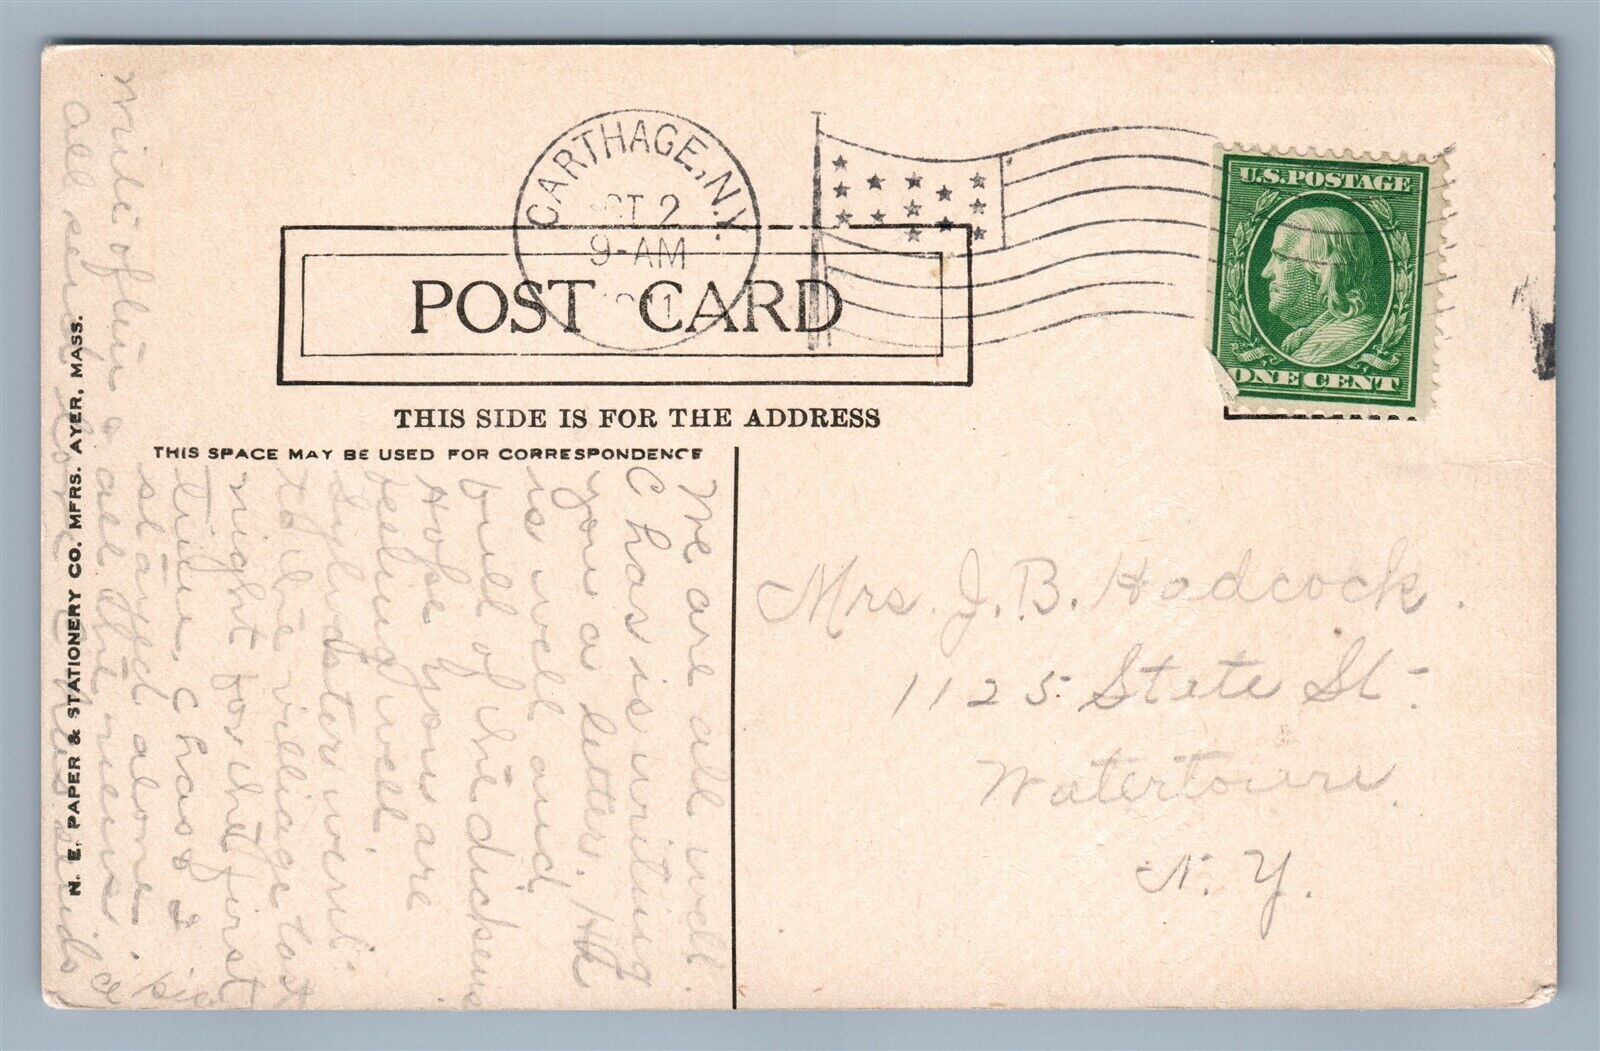 CARTHAGE, N.Y.
OCT 2
9-AM
1911
U.S. POSTAGE
ONE CENT
POST CARD
THIS SIDE IS FOR THE ADDRESS
THIS SPACE MAY BE USED FOR CORRESPONDENCE
N. E. PAPER & STATIONERY CO. MFRS. AYER, MASS.
We are all well.
Chas is writing
you a letter. He
is well and
full of the dickens
Hope you are
feeling well.
went
to the village last
night for the first
time. Chas & I
stayed alone.
all the news.
Write often
all send love
Mrs. J. B. Hadcock.
1125 State St.
Watertown.
N. Y.